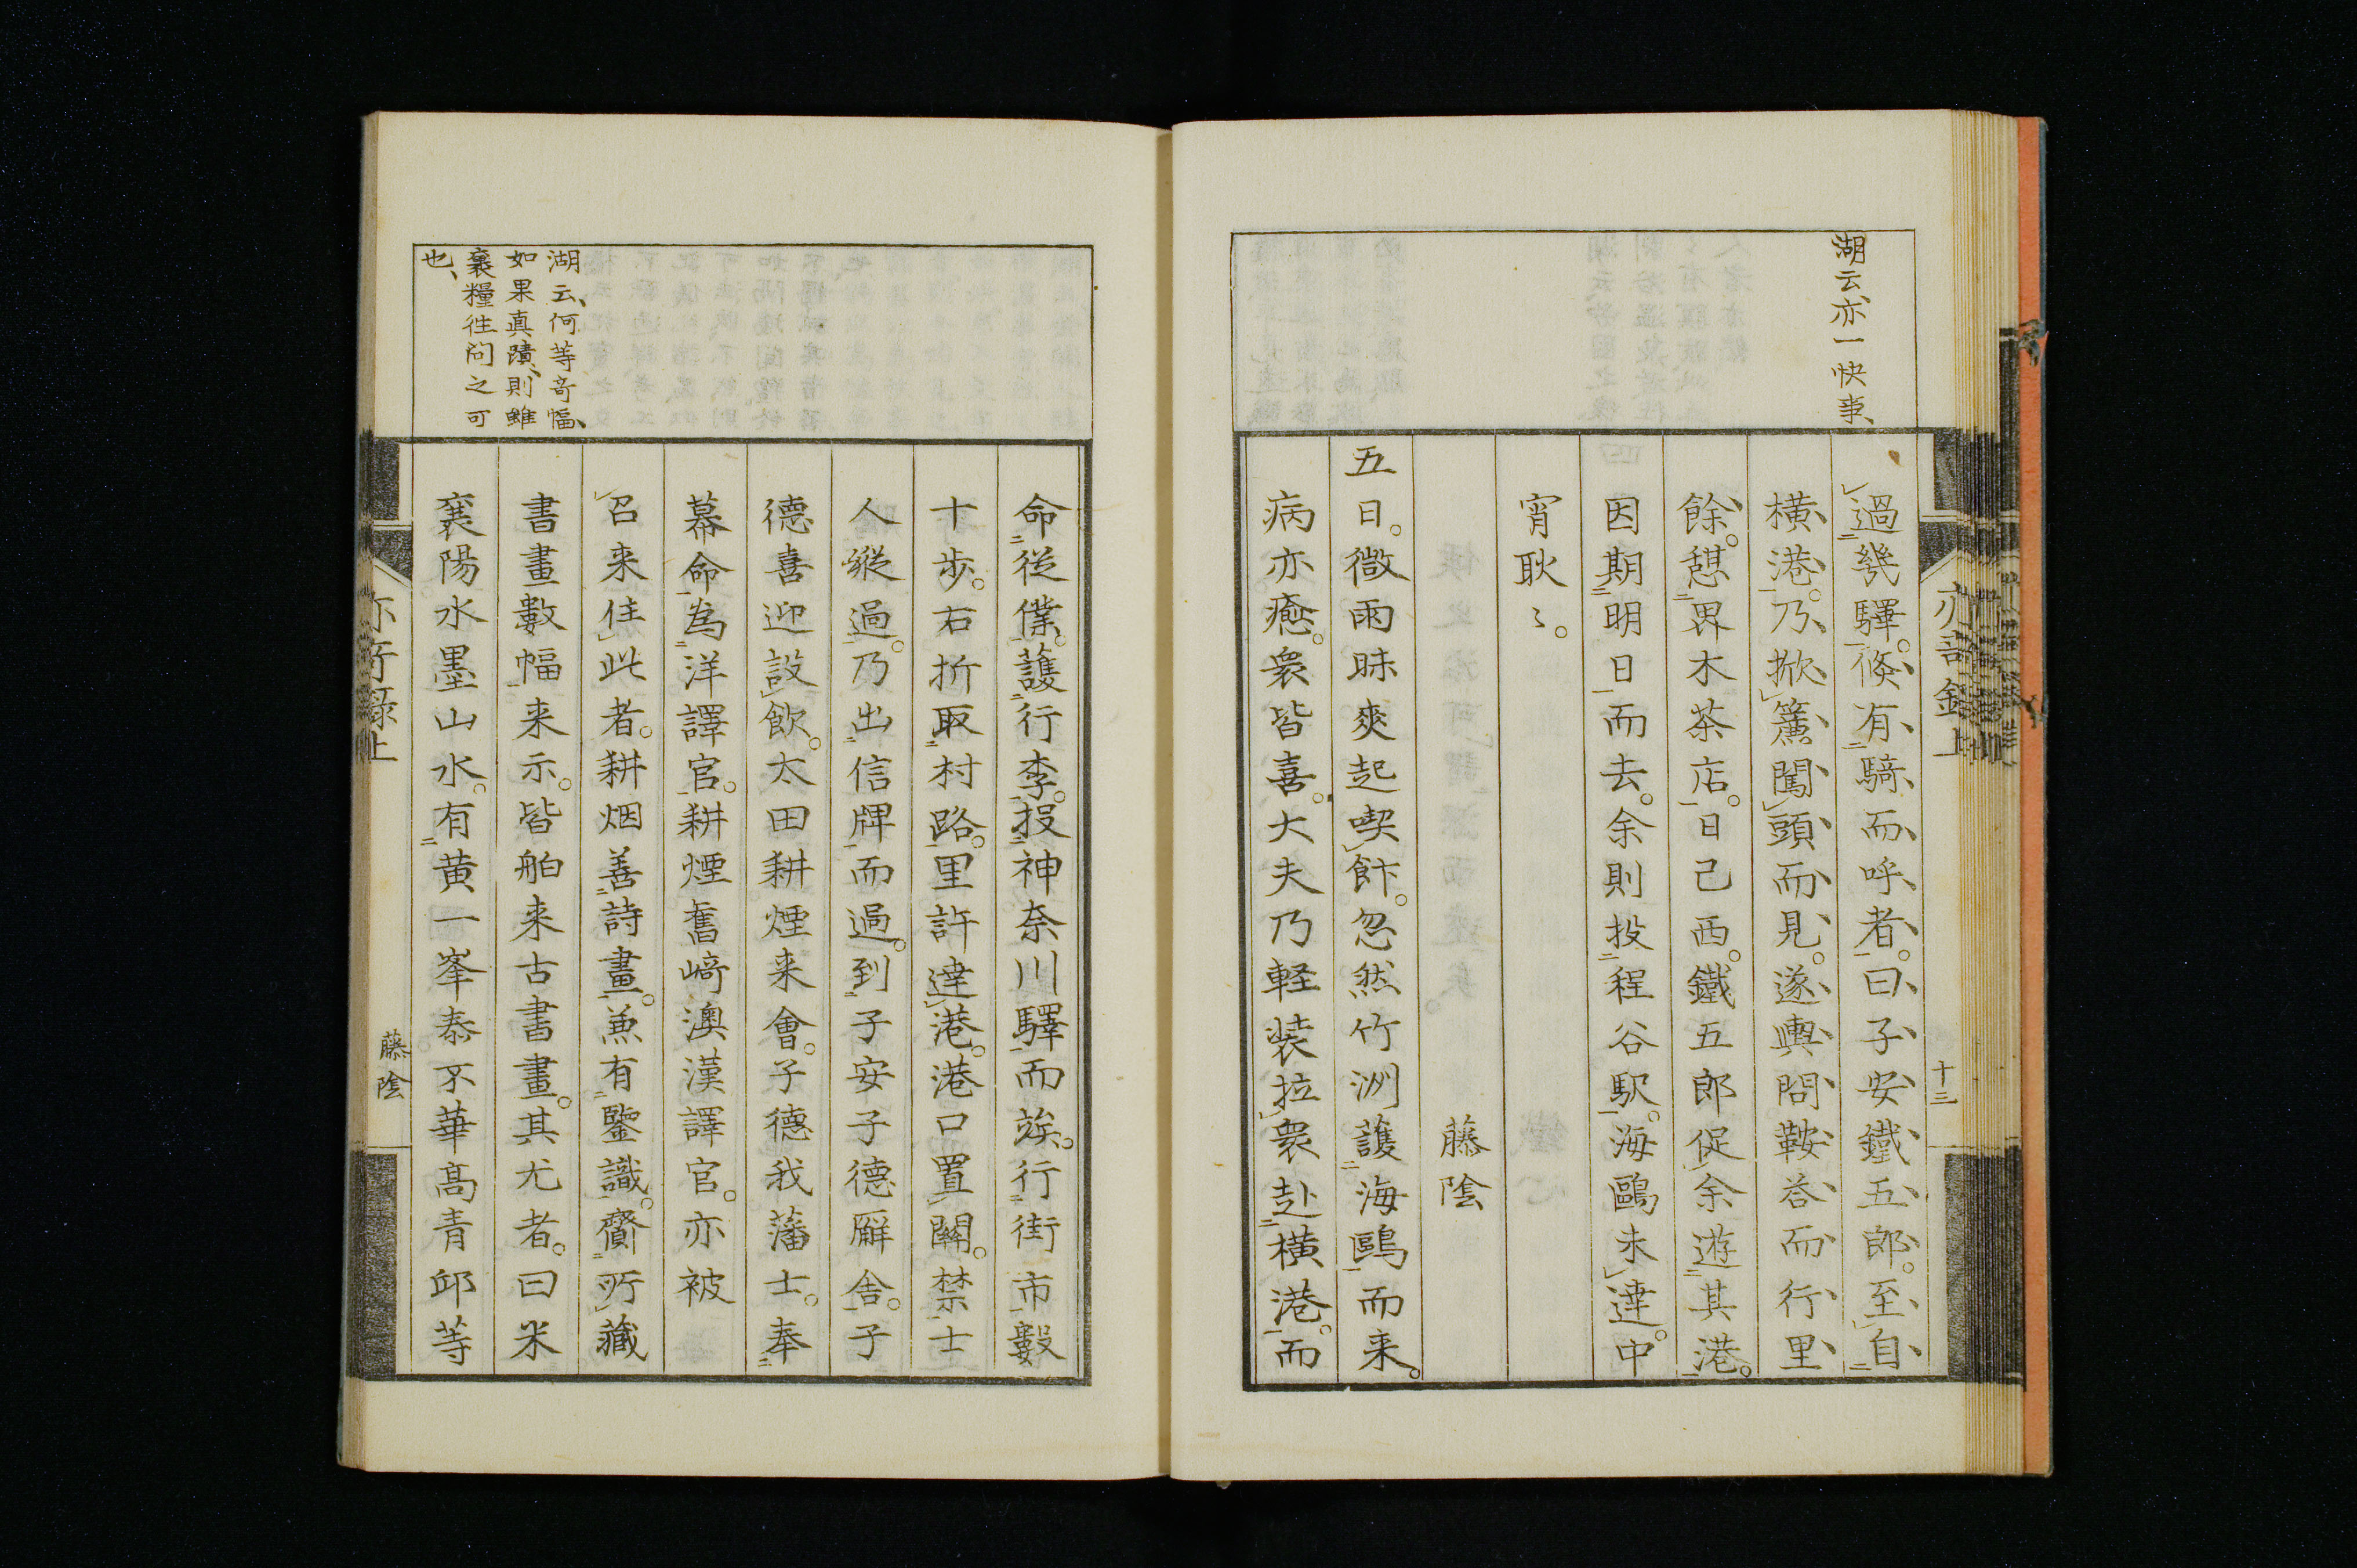 湖云、亦一快事、
過幾驛。倏有騎而呼者。曰子安鐵五郎。至自
橫港。乃掀簾闖頭而見。遂輿問鞍荅而行里
餘。憇界木茶店。日已西。鐵五郎促余遊其港。
因期明日而去。余則投程谷駅。海鷗未達。中
宵耿〻。
藤陰
五日。微雨昧爽起喫飰。忽然竹洲護海鷗而来。
病亦癒。衆皆喜。大夫乃軽装拉衆赴橫港。而
十三
亦奇録上
湖云、何等奇幅、
如果真蹟、則雖
裹糧徃問之可
也、
命従僕。護行李。投神奈川驛而竢。行街市數
十歩。右折取村路。里許達港。港口置關。禁士
人縱過。乃出信牌而過。到子安子德廨舎。子
德喜迎設飲。太田耕煙来會。子德我藩士。奉
幕命為洋譯官。耕煙舊﨑澳漢譯官。亦被
召来住此者。耕烟善詩畫。兼有鑒識。齎所藏
書畫數幅来示。皆舶来古書畫。其尤者。曰米
襄陽水墨山水。有黄一峯泰不華高青邱等
亦奇録上
藤陰